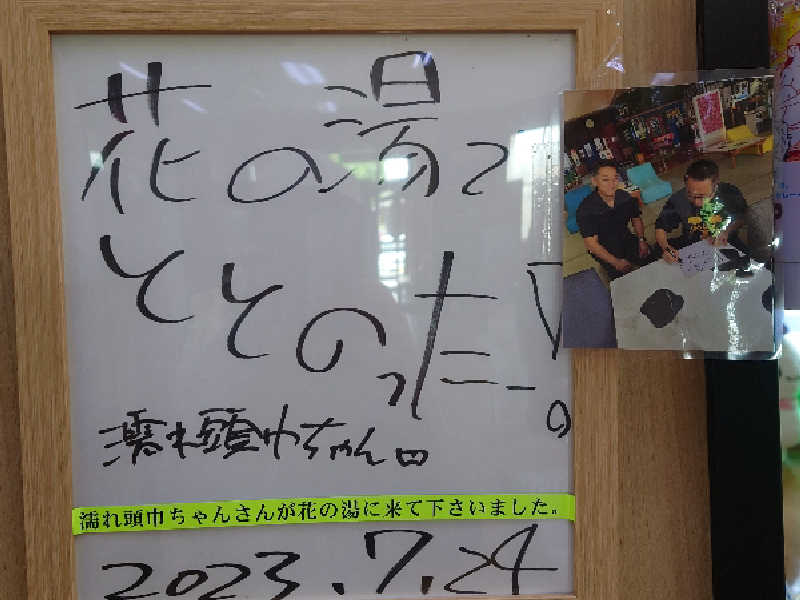 花の湯で
ととのった!
濡れ頭巾ちゃん
濡れ頭巾ちゃんさんが花の湯に来て下さいました。
2023.7.24